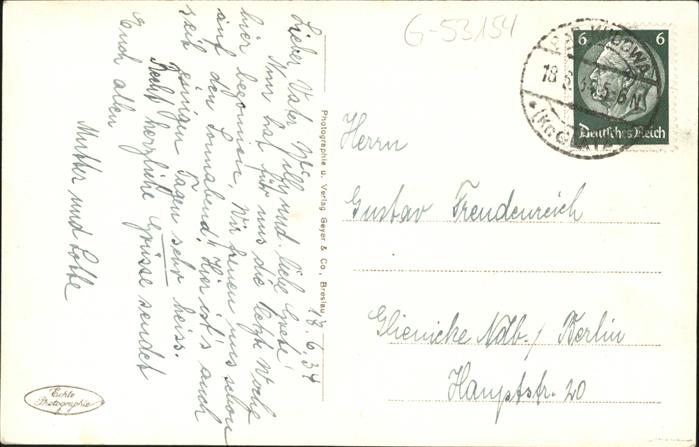 G-53154
18.6.34
Lieber Vater, Willy und liebe Grete!
Nun hat für uns die letzte Woche
hier begonnen. Wir freuen uns schon
auf den Sonnabend. Hier ist's auch
seit einigen Tagen sehr heiss.
Recht herzliche Grüsse sendet
Euch allen
Mutter und Lotte
Photographie u. Verlag Geyer & Co., Breslau
Echte
Photographie
BAD KUDOWA
18.6.34 5-6 N
6 6
Deutsches Reich
Herrn
Gustav Freudenreich
Glienicke Ndb./Berlin
Hauptstr. 20